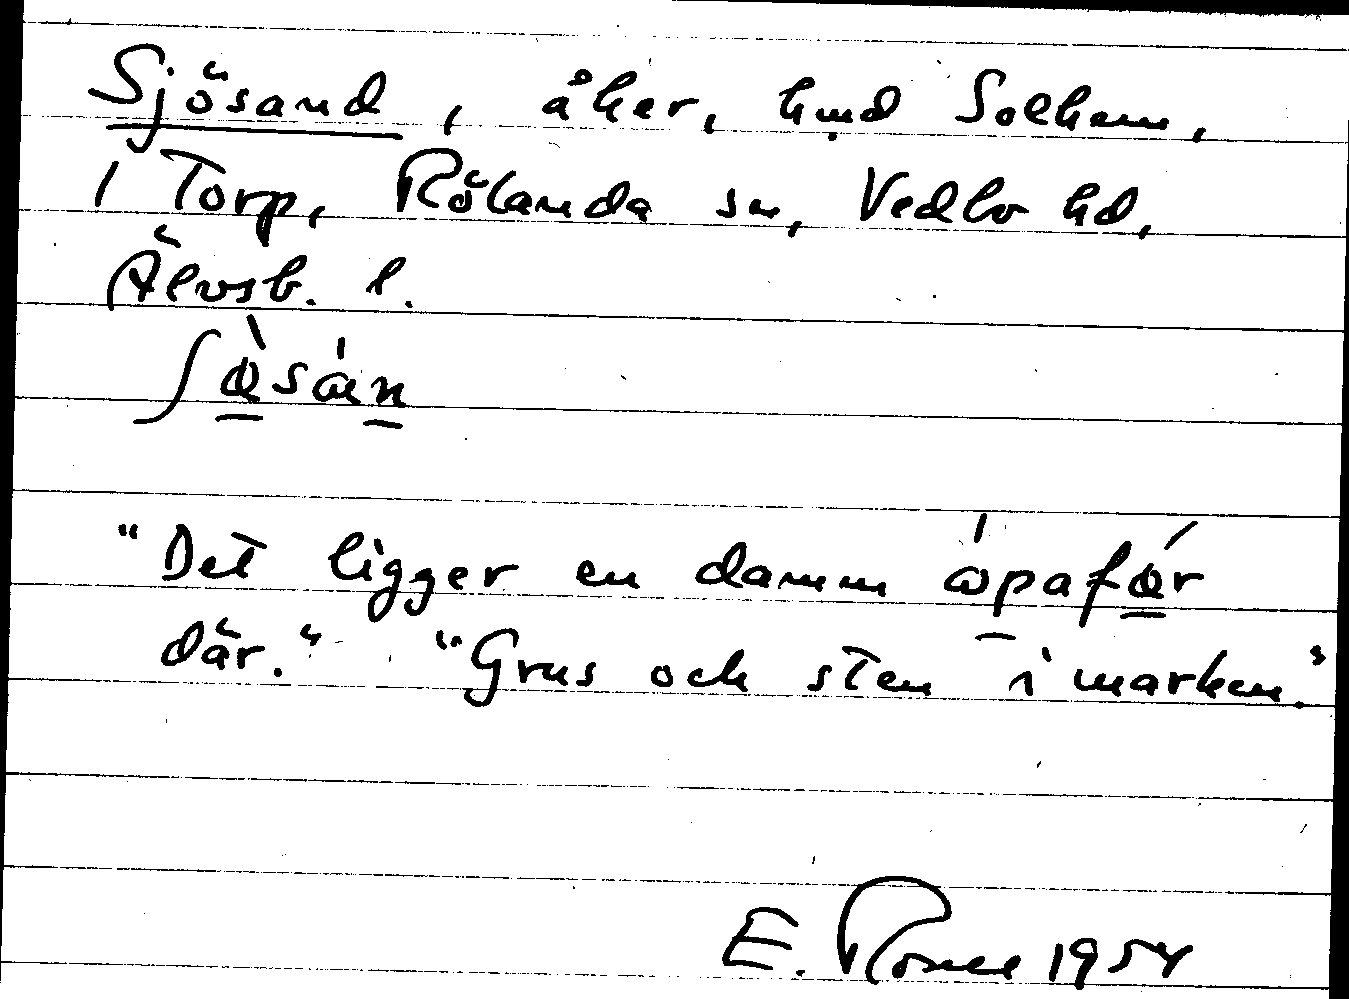 Sjösand, åker, hmd Solhem,
1 Torp, Rölanda sn, Vedbo hd,
Älvsb. l.
"Det ligger en damm
där." "Grus och sten i marken."
E. 1954